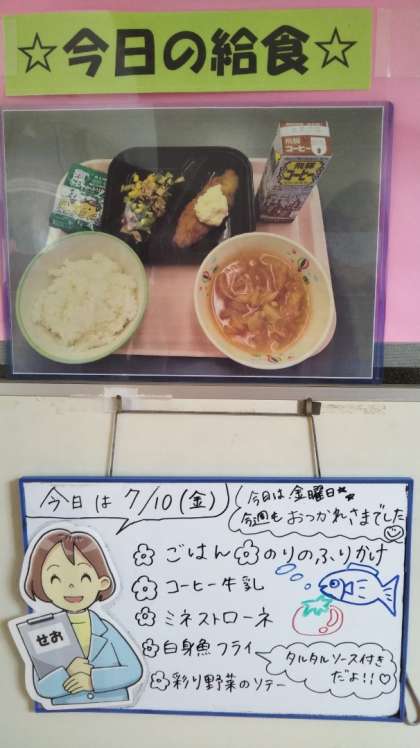 ☆今日の給食☆
飛騨
コーヒー
飛騨
コーヒー
今日は 7/10(金)
今日は金曜日
今週もおつかれさまでした
ごはん のりのふりかけ
コーヒー牛乳
ミネストローネ
白身魚フライ
タルタルソース付き
だよ!!♡
彩り野菜のソテー
せお